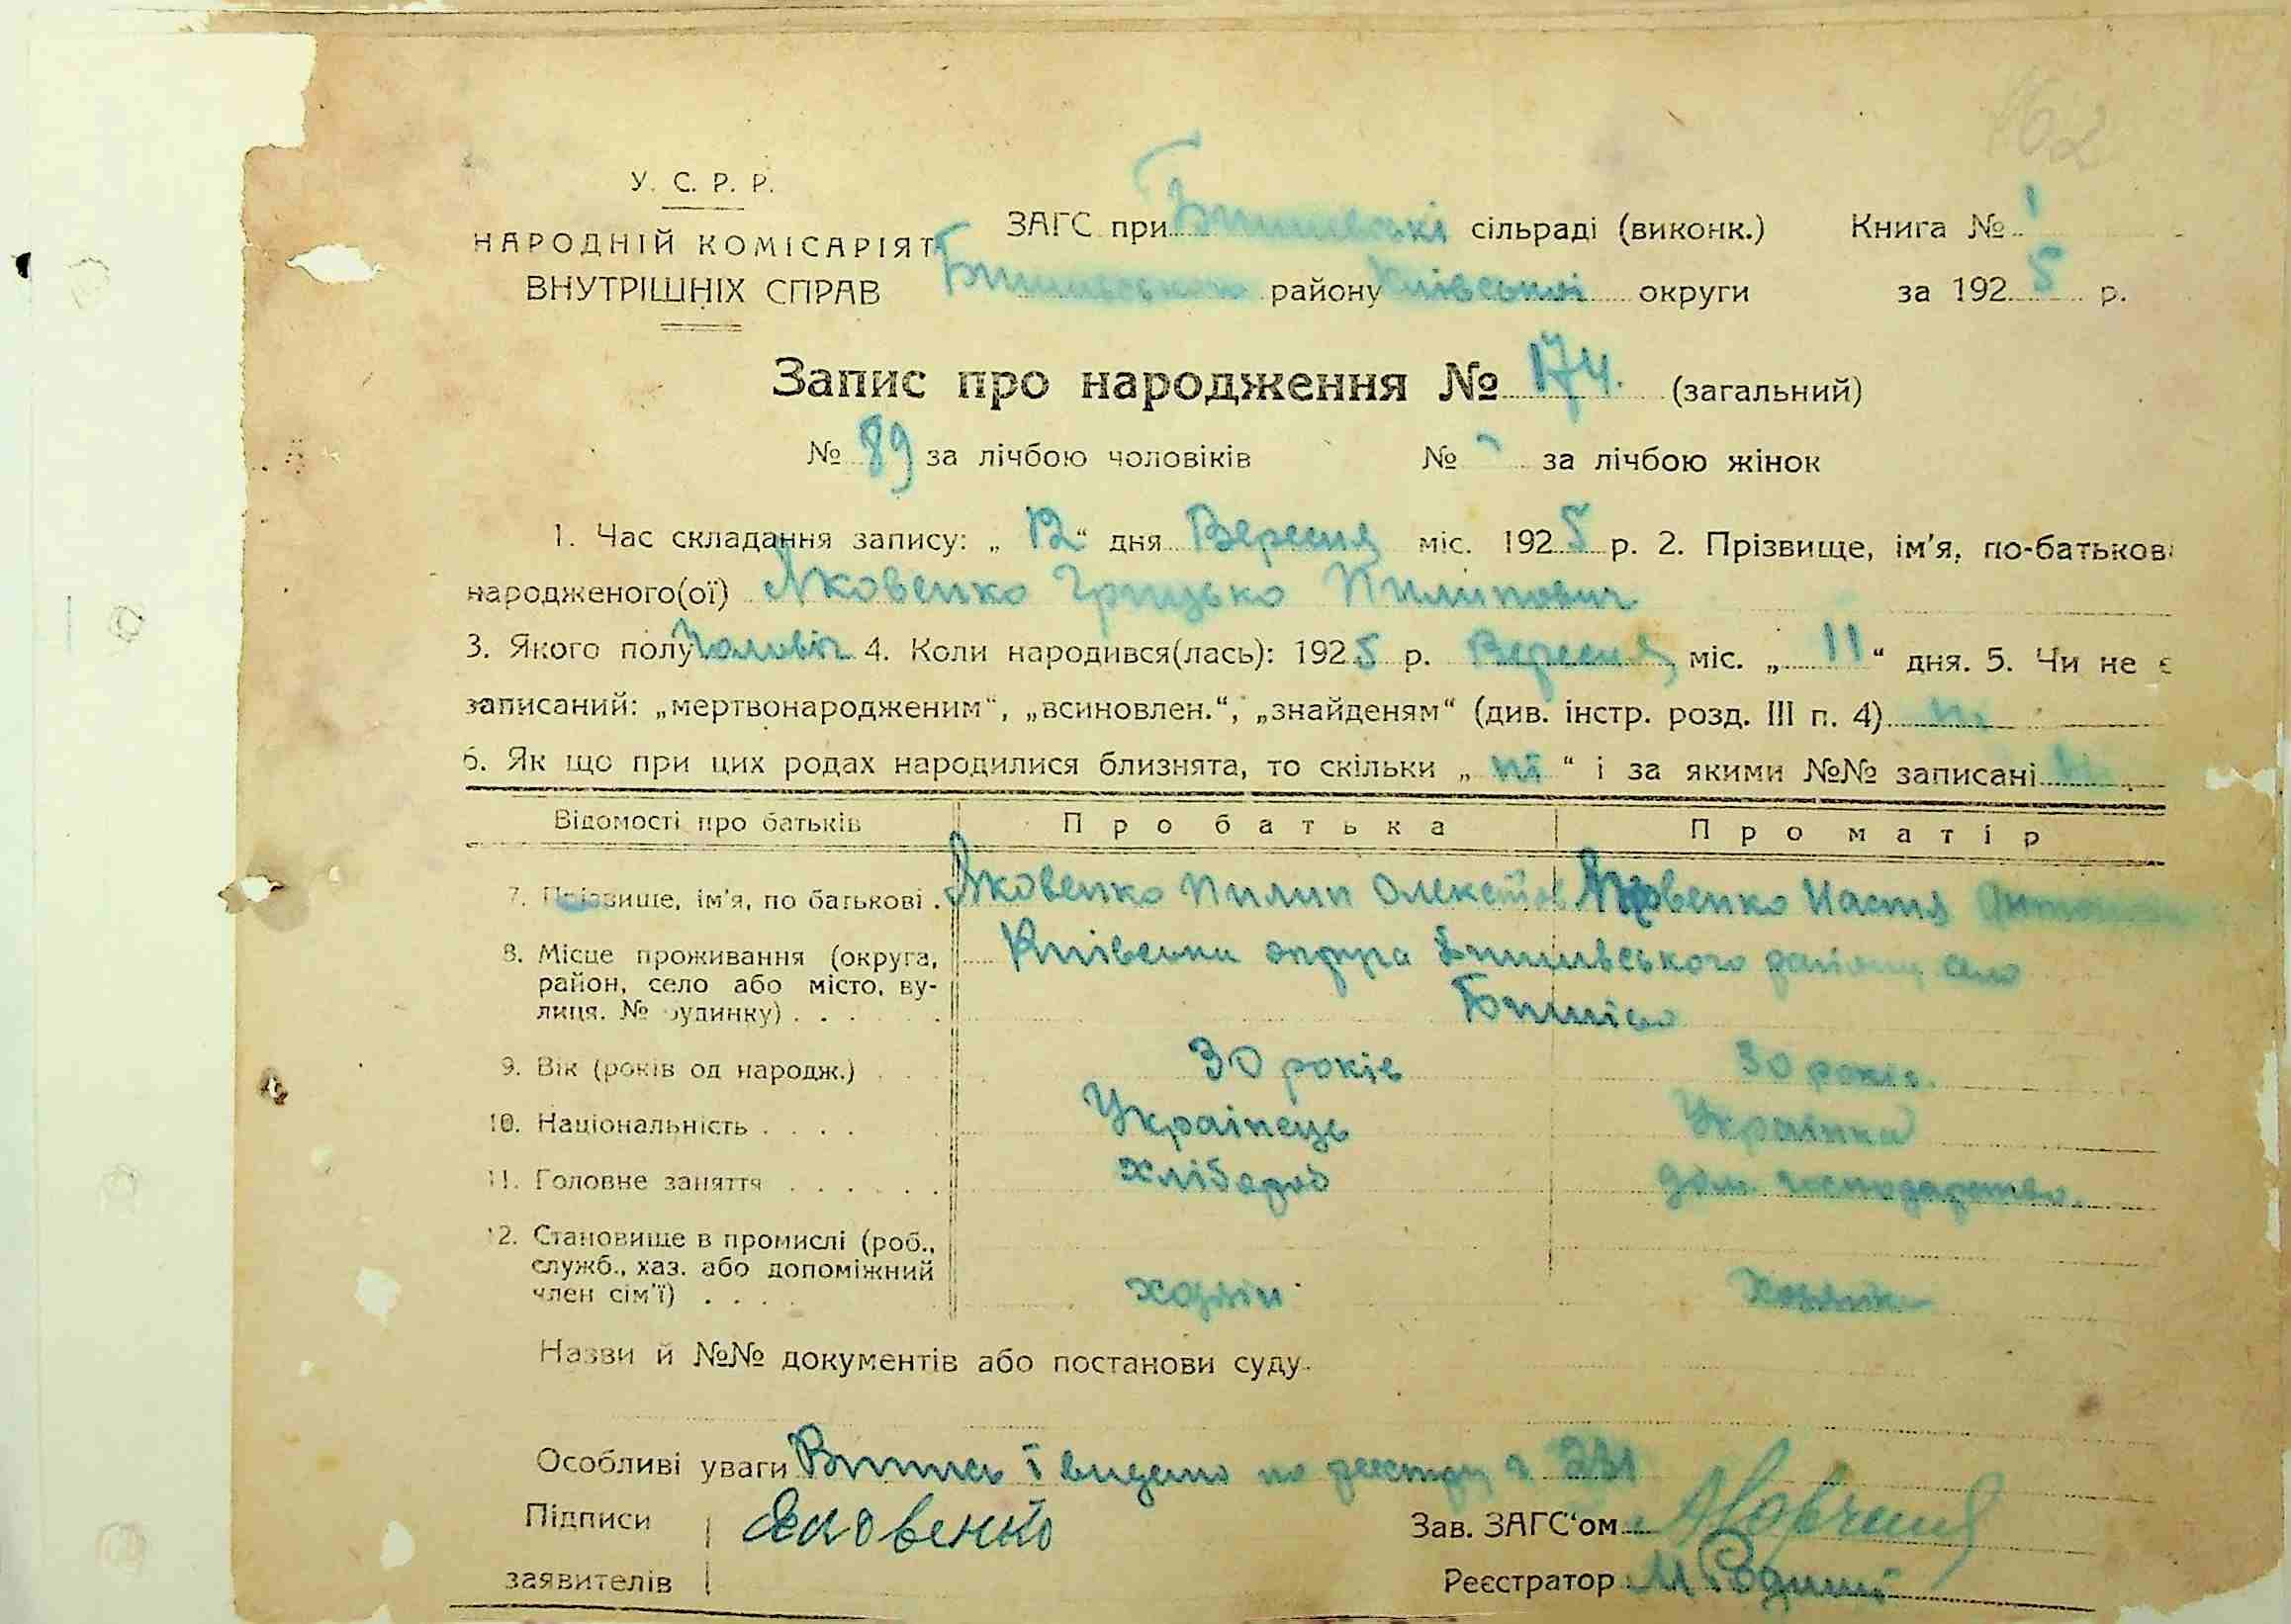 162
У. С. Р. Р.
НАРОДНІЙ КОМІСАРІЯТ
ВНУТРІШНІХ СПРАВ
ЗАГС при Бишівські сільраді (виконк.) Книга № 1
Бишівського району Київської округи за 1925 р.
Запис про народження № 174. (загальний)
№ 89 за лічбою чоловіків № за лічбою жінок
1. Час складання запису: „ 12 “ дня Вересня міс. 1925 р. 2. Прізвище, ім'я, по-батьков
народженого(ої) Яковенко Грицько Пилипович
3. Якого полу Чоловіч 4. Коли народився(лась): 1925 р. Вересня міс. „ 11 “ дня. 5. Чи не є
записаний: „мертвонародженим“, „всиновлен.“, „знайденям“ (див. інстр. розд. III п. 4) ні
6. Як що при цих родах народилися близнята, то скільки „ ні “ і за якими №№ записані ні
Відомості про батьків Про батька Про матір
7. Прізвище, ім'я, по батькові . Яковенко Пилип Яковенко Настя
8. Місце проживання (округа, район, село або місто, ву- лиця. № будинку) . . . Київська округа Бишівського району село
Бишів
9. Вік (років од народж.) . . 30 років 30 років.
10. Національність . . . . Українець Українка
11. Головне заняття . . . . . . Хлібороб дом. господарство.
12. Становище в промислі (роб., служб., хаз. або допоміжний член сім'ї) . . . . хазяїн Хазяйка
Назви й №№ документів або постанови суду
Особливі уваги Випись видано по реєстру 231
Підписи Яковенко Зав. ЗАГС'ом
заявителів Реєстратор М